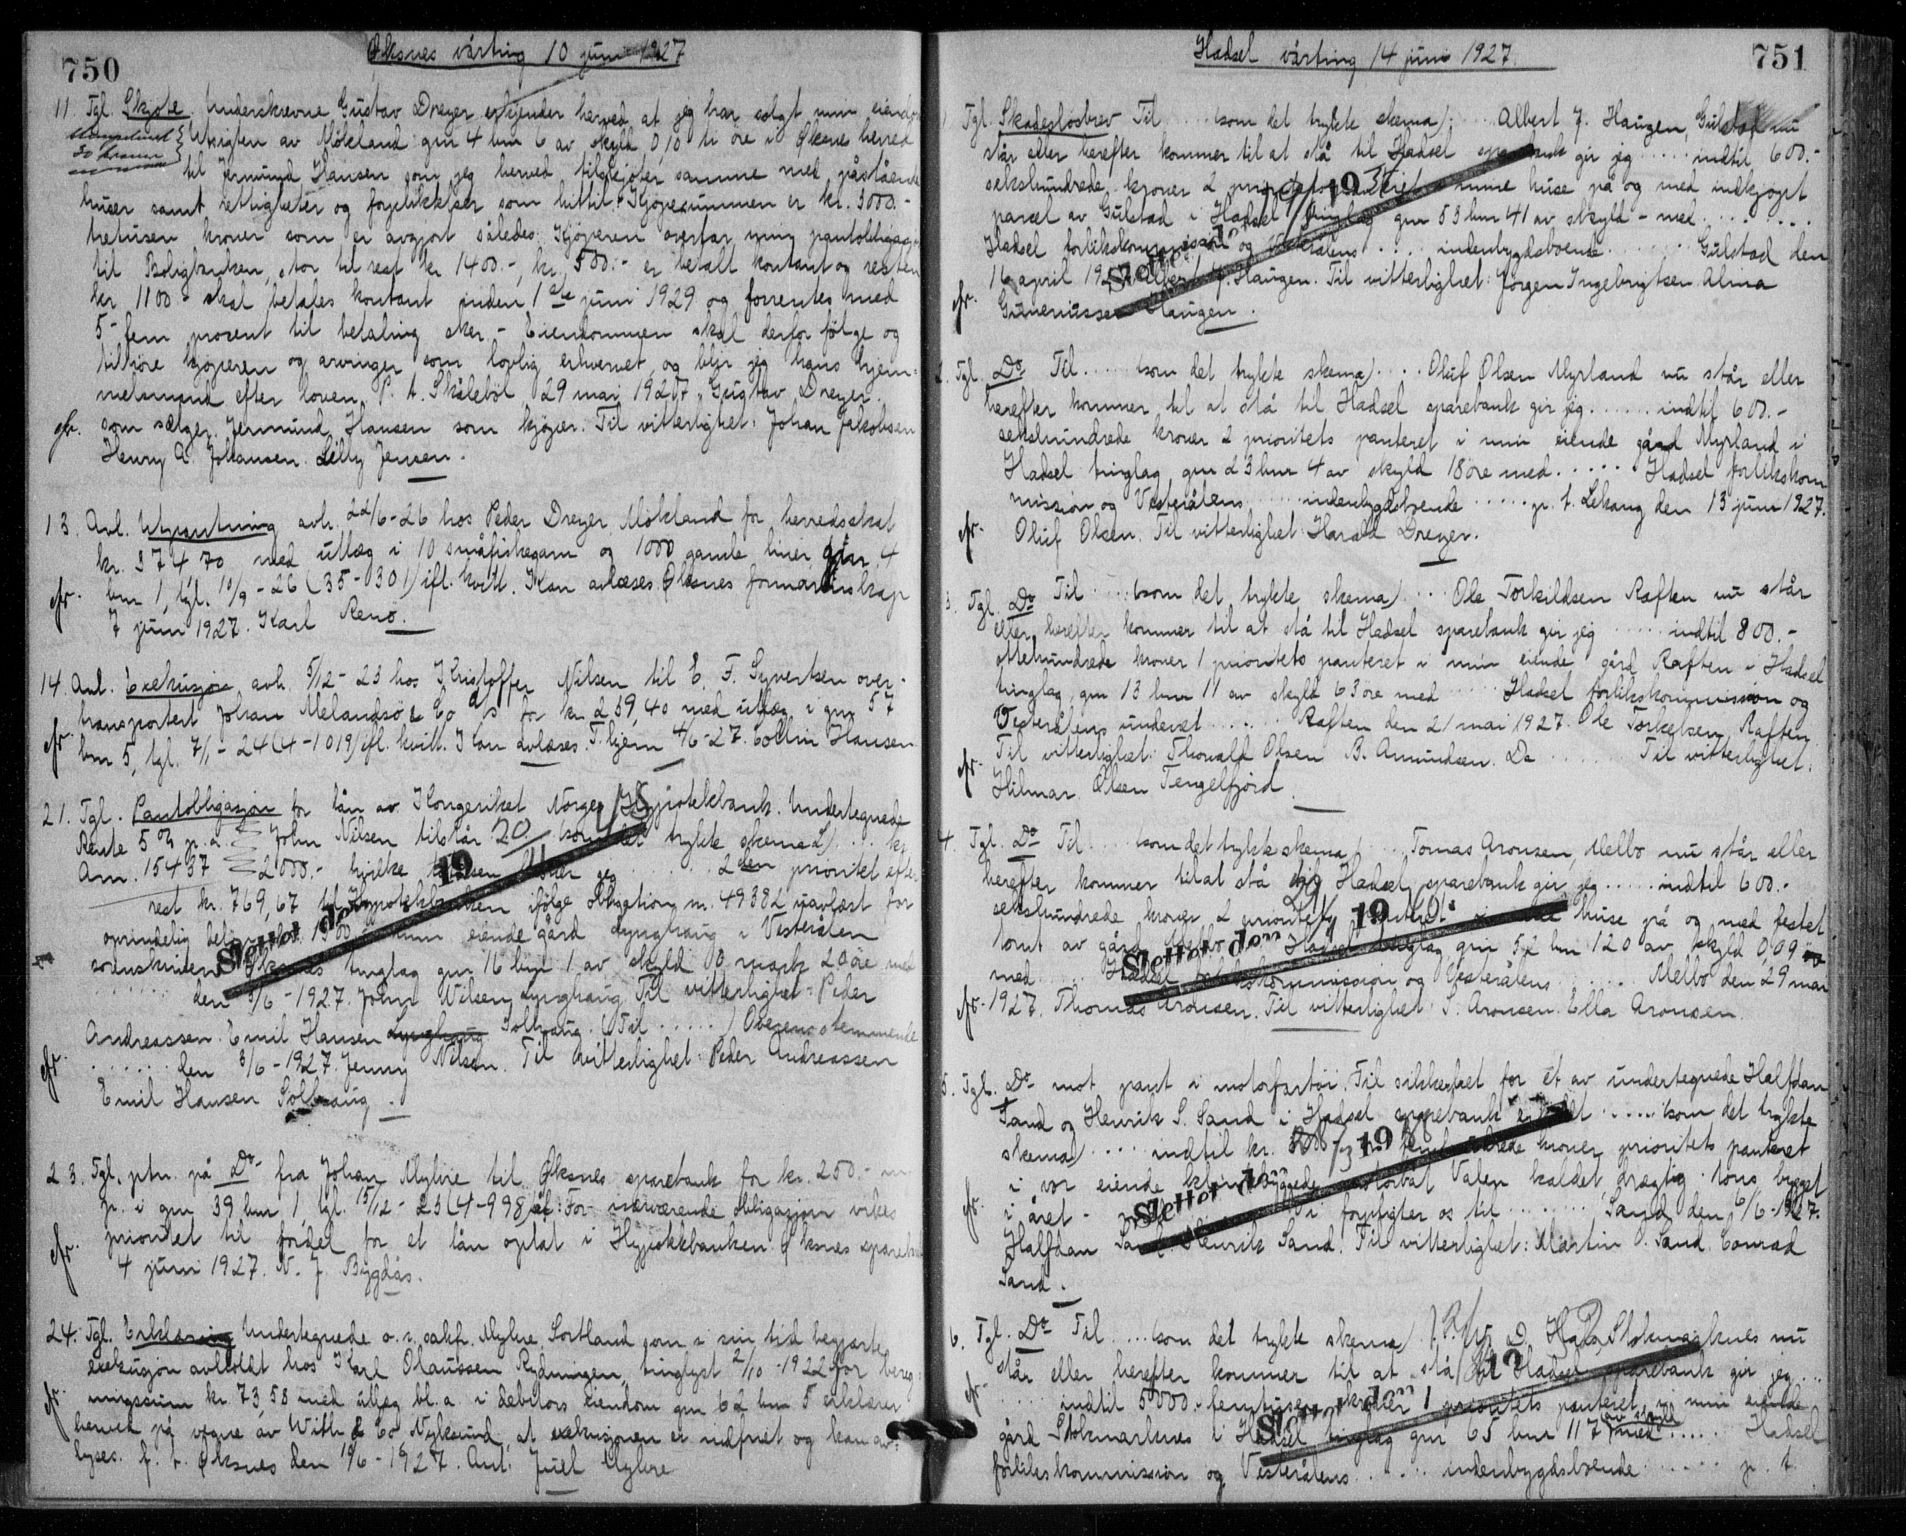 750
Øksnes vårting 10 juni 1927
11 Tgl. Skjøte. Underskrevne Gustav Dreyer erkjender herved at jeg har solgt min eiendom
stempelmerket 30 kroner
av Mökland gnr 4 bnr 6 av skyld 0,10 ti öre i Öksnes herred
til Jermund Hansen som jeg herved tilskjöter samme med påstående
huser samt rettigheter og forpliktelser som hittil. Kjöpesummen er kr. 3000.-
tretusen kroner som er avgjort således: Kjöperen overtar min pantobligasjon
til Boligbanken, stor til rest kr 1400.-, kr. 500.- er betalt kontant og resten
kr 1100 - skal betales kontant inden 1ste juni 1929 og forrentes med
5 fem prosent til betaling sker. - Eiendommen skal derfor fölge og
tilhöre kjöperen og arvinger som lovlig erhvervet og blir jeg hans hjem-
melsmand efter loven. P. t. Skåleböl 29 mai 1927 Gustav Dreyer.
som selger. Jermund Hansen som kjöper. Til vitterlighet: Johan Jakobsen
Henry A. Johansen. Lilly Jensen.
13. Avl. Utpantning avh. 22/6-26 hos Peder Dreyer Mökland for herredsskat
kr. 374 70 med utlæg i 10 småfiskegarn og 1000 gamle liner gnr. 4
bnr 1, tgl. 10/9 - 26 (35-030) ifl. kvitt. Kan avlæses. Öksnes formandskap
7 juni 1927. Karl Renö.
14. Avl. Exekusjon avh. 5/12-23 hos Kristoffer Nilsen til E. F. Syvertsen over-
transportert Johan Melandsö & Co A/S for kr 259,40 med utlæg i gnr 57
bnr 5, tgl. 7/1 - 24 (4-1019) ifl. kvitt. Kan avlæses. T.hjem 4/6-27. Collin Hansen
21. Tgl. Pantobligasjon for lån av Kongeriket Norges Hypotekbank. Undertegnede
Rente 5 % p. a. John Nilsen tilstår (som det trykte skema) .... kr
Am. 15437 2000.- hvilke 2den prioritet efter
rest kr. 769,67 til Hypotekbanken ifölge obligation nr. 49382 uavlæst for
oprindelig 1500 i min eiende gård Lynghaug i Vesterålen
sorenskriveri Öksnes tinglag gnr 16 bnr 1 av skyld 0 mark 20 öre med
...... den 3/6-1927. John Nilsen Lynghaug. Til vitterlighet: Peder
Andreassen. Emil Hansen Solhaug. (Til ......) Overensstemmende
...... den 3/6-1927. Jenny Nilsen. Til vitterlighet: Peder Andreassen
Emil Hansen Solhaug.
Slettet den 20/11 1945
23. Tgl. ptn. på Do fra Johan Myhre til Öksnes sparebank for kr. 250.-
p. i gnr 39 bnr 1, tgl. 15/12-23 (4-998) For nærværende obligasjon vikes
prioritet til fordel for et lån optat i Hypotekbanken. Öksnes sparebank
4 juni 1927. N. J. Bygdås.
24. Tgl. Erklæring Undertegnede o. r. sakf. Myhre Sortland som i sin tid begjærte
exekusjon avholdt hos Karl Olaussen Rydningen, tinglyst 2/10-1922 for
kr 73,58 med utlæg bl. a. i debitors eiendom gnr 62 bnr 5 erklærer
herved på vegne av With & Co Nyksund, at exekusjonen er indfriet og kan av-
lyses. p. t. Öksnes den 10/6-1927. Ant. Juel Myhre
751
Hadsel vårting 14 juni 1927
1. Tgl. Skadeslösbrev Til ..... (som det trykte skema) .... Albert J. Haugen, Gulstad nu
står eller herefter kommer til at stå til Hadsel sparebank gir jeg ..... indtil 600.-
sekshundrede kroner 2 prioritets panteret i mine huse på og med indkjøpt
parcel av Gulstad i Hadsel tinglag gnr 53 bnr 41 av skyld - med ......
Hadsel forlikskommission og Vesterålens .... indenbygdsboende ...... Gulstad den
16 april 1927 Albert J. Haugen. Til vitterlighet: Jörgen Ingebrigtsen Alma
Haugen.
2. Tgl. Do Til ..... (som det trykte skema) .... Oluf Olsen Myrland nu står eller
herefter kommer til at stå til Hadsel sparebank gir jeg ...... indtil 600.-
sekshundrede kroner 2 prioritets panteret i min eiende gård Myrland i
Hadsel tinglag gnr 23 bnr 4 av skyld 18 öre med ..... Hadsel forlikskom
mission og Vesterålens ..... indenbygdsboende ..... p. t. Lekang den 13 juni 1927.
Oluf Olsen. Til vitterlighet: Harald Dreyer.
3. Tgl. Do Til ..... (som det trykte skema) ... Ole Torkildsen Raften nu står
eller herefter kommer til at stå til Hadsel sparebank gir jeg ..... indtil 800.-
ottehundrede kroner 1 prioritets panteret i min eiende gård Raften i Hadsel
tinglag gnr 13 bnr 11 av skyld 63 öre med ..... Hadsel forlikskommission og
Vesterålens underret ...... Raften den 21 mai 1927. Ole Torkelsen Raften
Til vitterlighet: Thorvald Olsen B. Amundsen. Do ...... Til vitterlighet:
Hilmar Olsen Tengelfjord.
4. Tgl. Do Til .... (som det trykte skema) .... Tomas Aronsen, Melbo nu står eller
herefter kommer til at stå til Hadsel sparebank gir jeg ..... indtil 600.-
sekshundrede kroner 2 prioritets panteret i mine huse på og med festet
tomt av gård Melbo i Hadsel tinglag gnr 52 bnr 120 av skyld 0,09
med ... Hadsel forlikskommission og Vesterålens ...... Melbo den 29 mai
1927. Thomas Aronsen. Til vitterlighet: S. Aronsen. Ella Aronsen.
Slettet den 19
5. Tgl. Do mot pant i motorfartöi. Til sikkerhet for et av undertegnede Halfdan
Sand og Henrik S. Sand i Hadsel sparebank ..... (som det trykte
skema) .... indtil kr. kroner, prioritets panteret
i vor eiende motorbåt Valen kaldet, drægtig - tons bygget
i året - Vi forpligter os til ........ Sand den 6/6-1927.
Halfdan Sand. Henrik Sand. Til vitterlighet: Martin Sand. Conrad
Sand.
Slettet den 19
6. Tgl. Do Til .... (som det trykte skema) D. Stokmarknes nu
står eller herefter kommer til at stå til Hadsel sparebank gir jeg ....
.... indtil 5000.- femtusen kroner 1 prioritets panteret i min eiende
gård Stokmarknes i Hadsel tinglag gnr 65 bnr 117 av skyld med ..... Hadsel
forlikskommission og Vesterålens ..... indenbygdsboende ...... p. t.
Slettet den 19